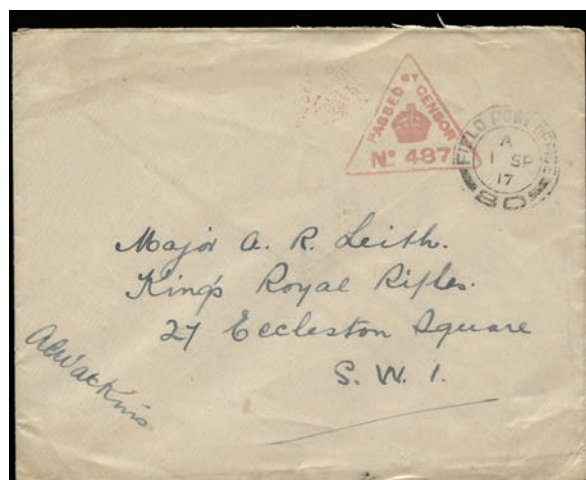 PASSED BY CENSOR
No 487
FIELD POST OFFICE
A
1 SP
17
80
Major A. R. Leith.
King's Royal Rifles.
27 Eccleston Square
S. W. 1.
Watkins